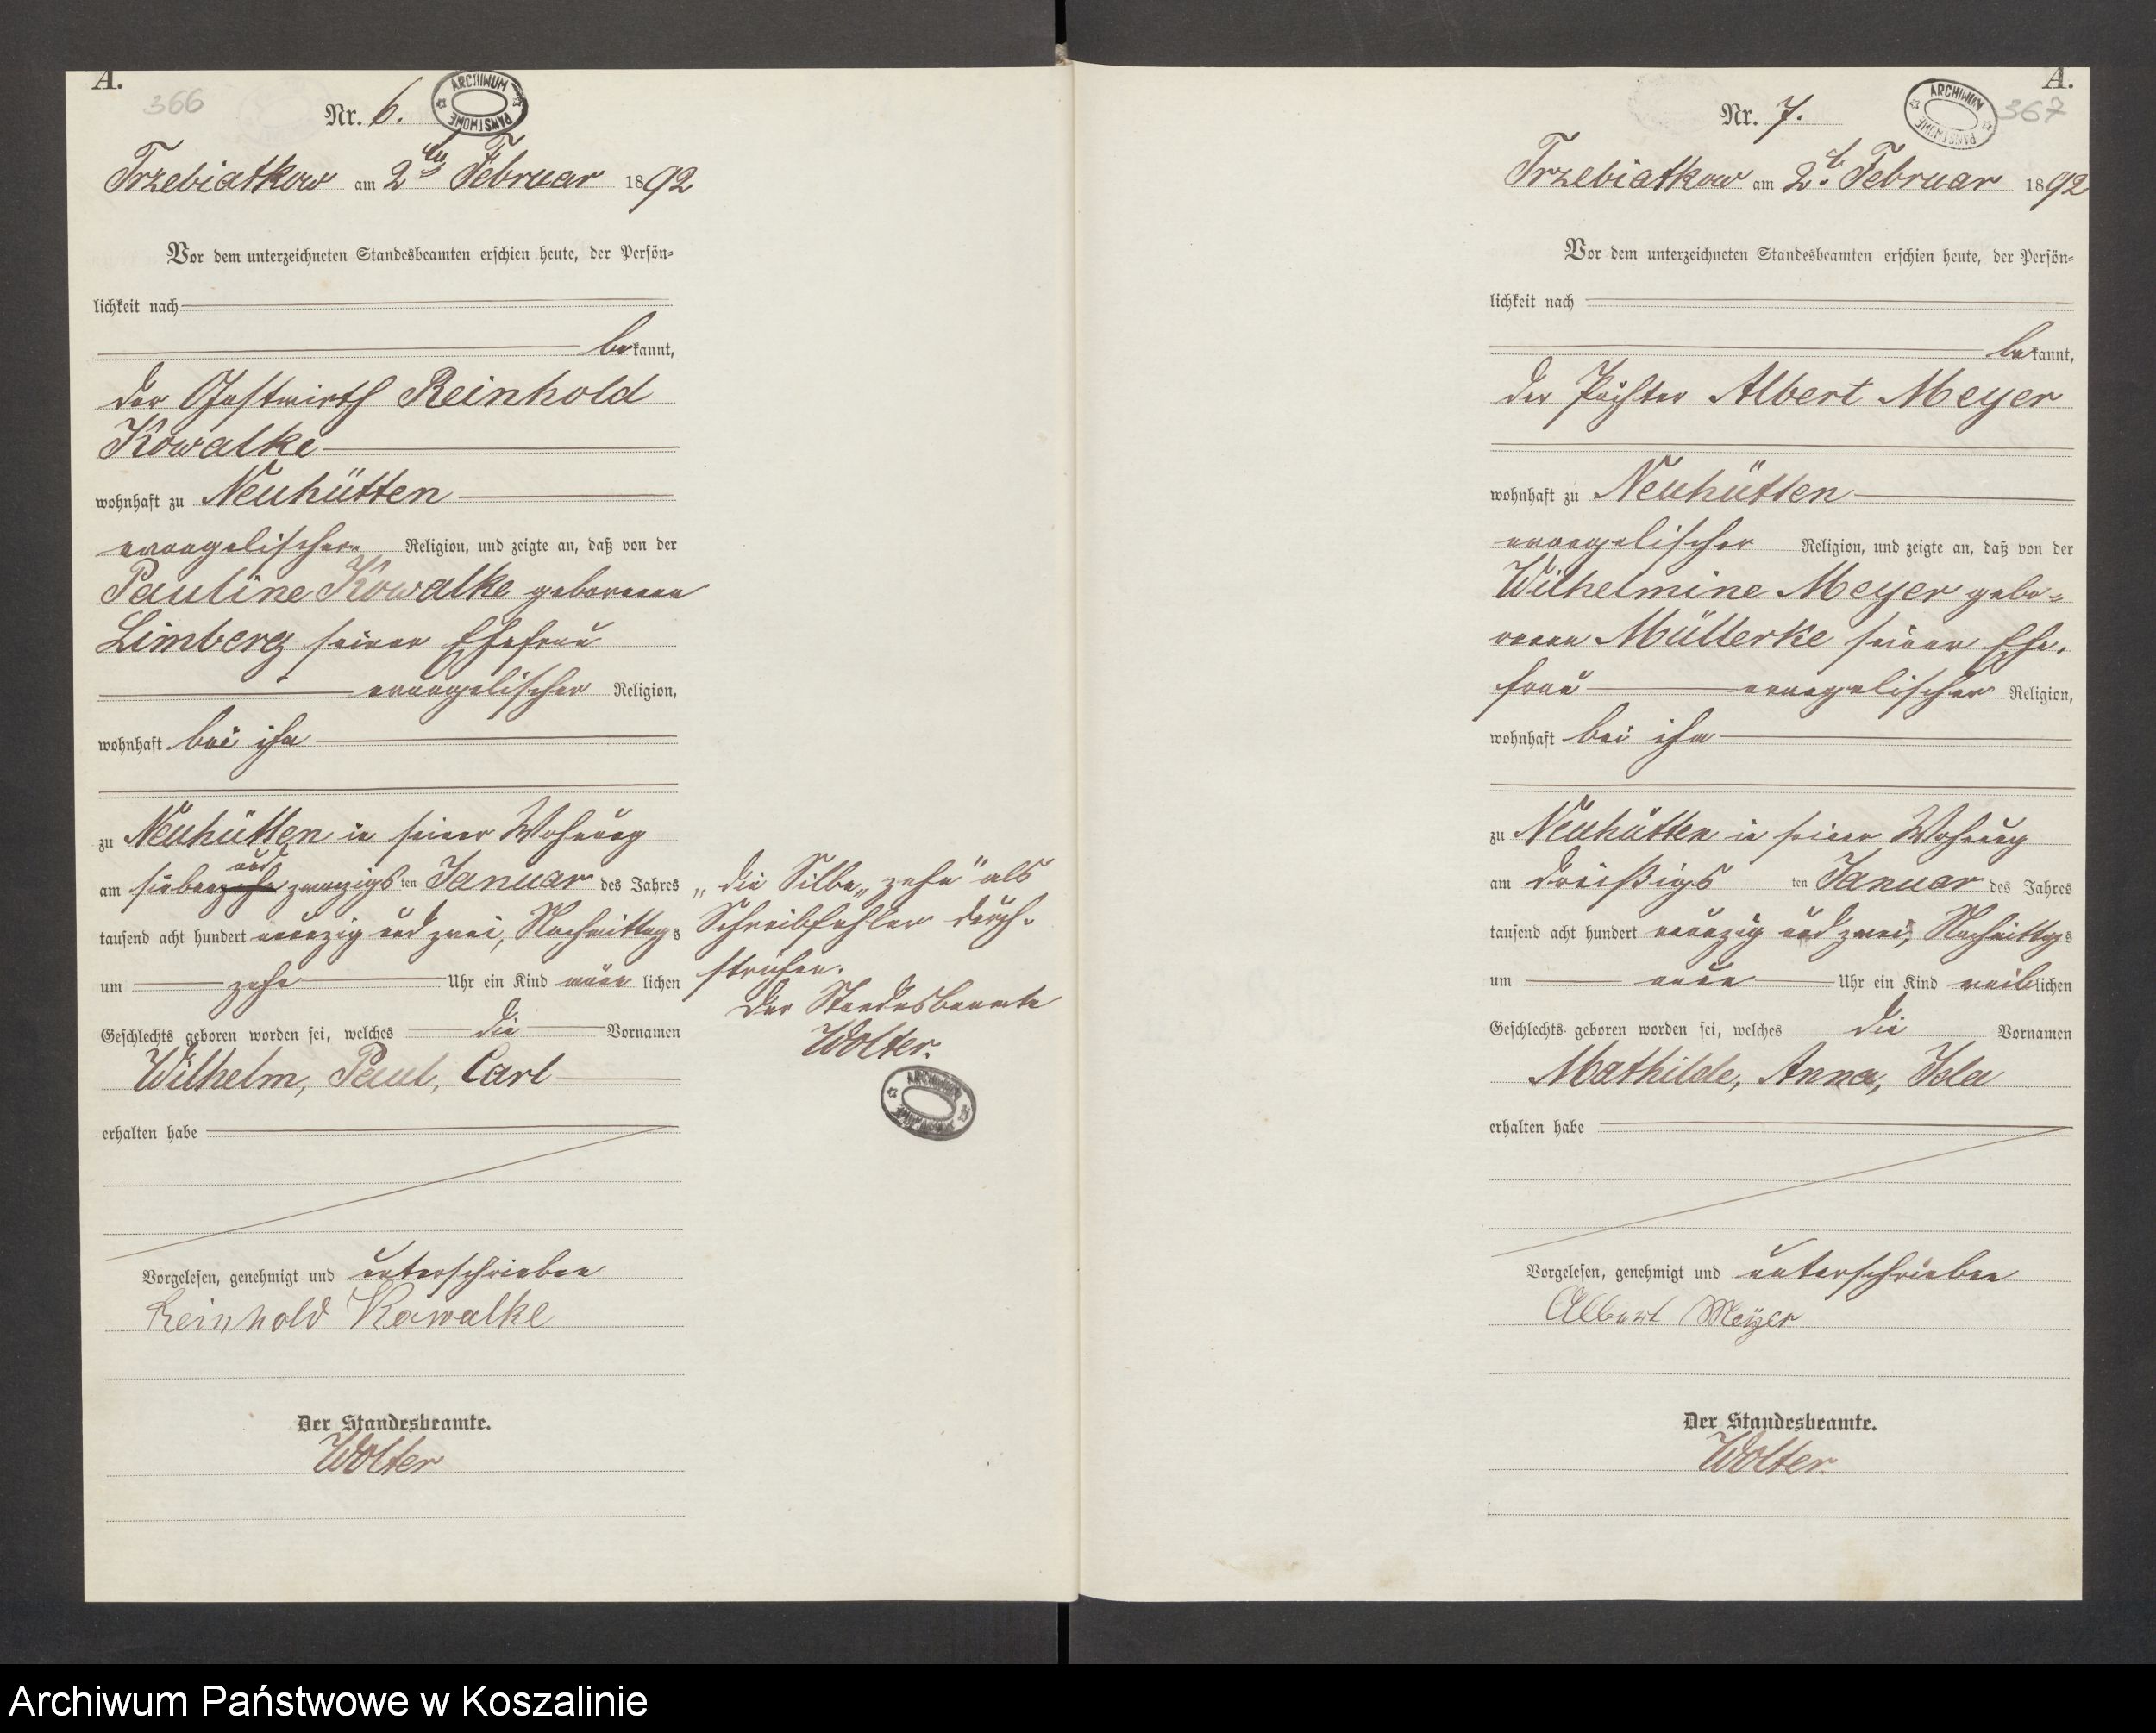 A.
366
Nr. 6.
ARCHIWUM PAŃSTWOWE
Trzebiatkow am 2ten Februar 1892
Vor dem unterzeichneten Standesbeamten erschien heute, der Persön-
lichkeit nach
bekannt,
der Gastwirth Reinhold
Kowalke
wohnhaft zu Neuhütten
evangelischer Religion, und zeigte an, daß von der
Pauline Kowalke geborenen
Limberg seiner Ehefrau
evangelischer Religion,
wohnhaft bei ihm
zu Neuhütten in seiner Wohnung
und
am siebenzehn zwanzigsten Januar des Jahres
tausend acht hundert neunzig und zwei, Nachmittags
um zehn Uhr ein Kind männlichen
Geschlechts geboren worden sei, welches die Vornamen
Wilhelm, Paul, Carl
erhalten habe
Vorgelesen, genehmigt und unterschrieben
Reinhold Kowalke
Der Standesbeamte.
Wolter
„die Silbe „zehn" als
Schreibfehler durch-
strichen.
Der Standesbeamte
Wolter.
ARCHIWUM PAŃSTWOWE
A.
367
Nr. 7.
ARCHIWUM PAŃSTWOWE
Trzebiatkow am 2t. Februar 1892
Vor dem unterzeichneten Standesbeamten erschien heute, der Persön-
lichkeit nach
bekannt,
der Pächter Albert Meyer
wohnhaft zu Neuhütten
evangelischer Religion, und zeigte an, daß von der
Wilhelmine Meyer gebo-
renen Müllerke seiner Ehe-
frau evangelischer Religion,
wohnhaft bei ihm
zu Neuhütten in seiner Wohnung
am dreißigsten Januar des Jahres
tausend acht hundert neunzig und zwei, Nachmittags
um neun Uhr ein Kind weiblichen
Geschlechts geboren worden sei, welches die Vornamen
Mathilde, Anna, Ida
erhalten habe
Vorgelesen, genehmigt und unterschrieben
Albert Meyer
Der Standesbeamte.
Wolter.
Archiwum Państwowe w Koszalinie